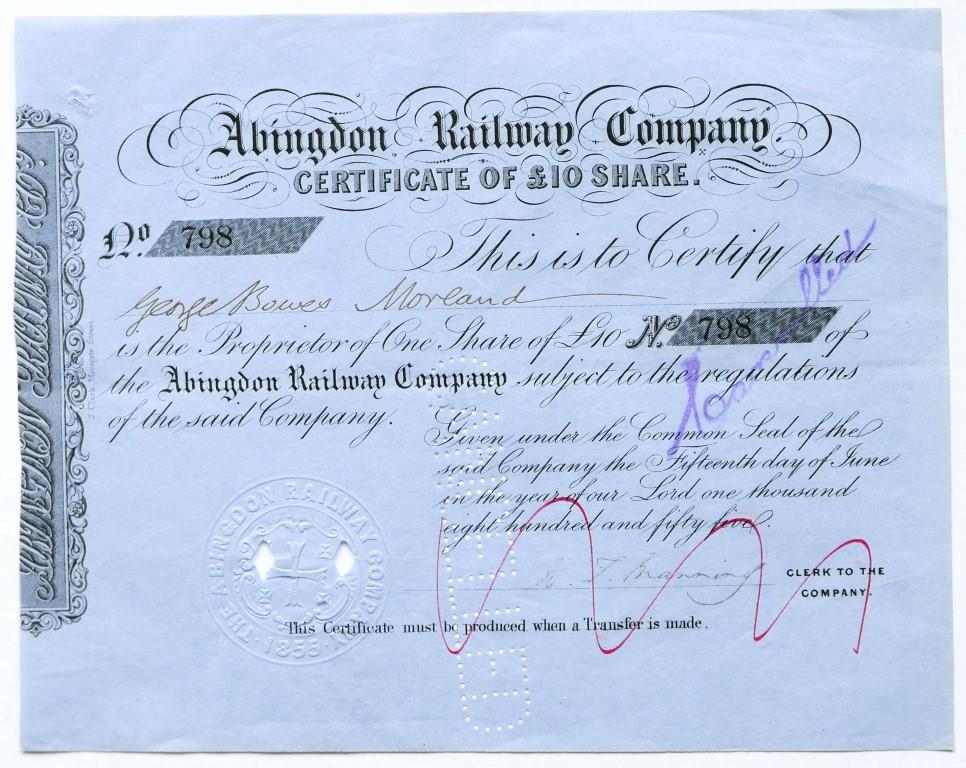 Abingdon Railway Company.
CERTIFICATE OF £10 SHARE.
No. 798
This is to Certify that
George Bowes Morland
is the Proprietor of One Share of £10 No. 798 of
the Abingdon Railway Company subject to the regulations
of the said Company.
Given under the Common Seal of the
said Company the Fifteenth day of June
in the year of our Lord one thousand
eight hundred and fifty five.
Manning
CLERK TO THE
COMPANY.
This Certificate must be produced when a Transfer is made.
THE ABINGDON RAILWAY COMPANY
1855
Cancelled